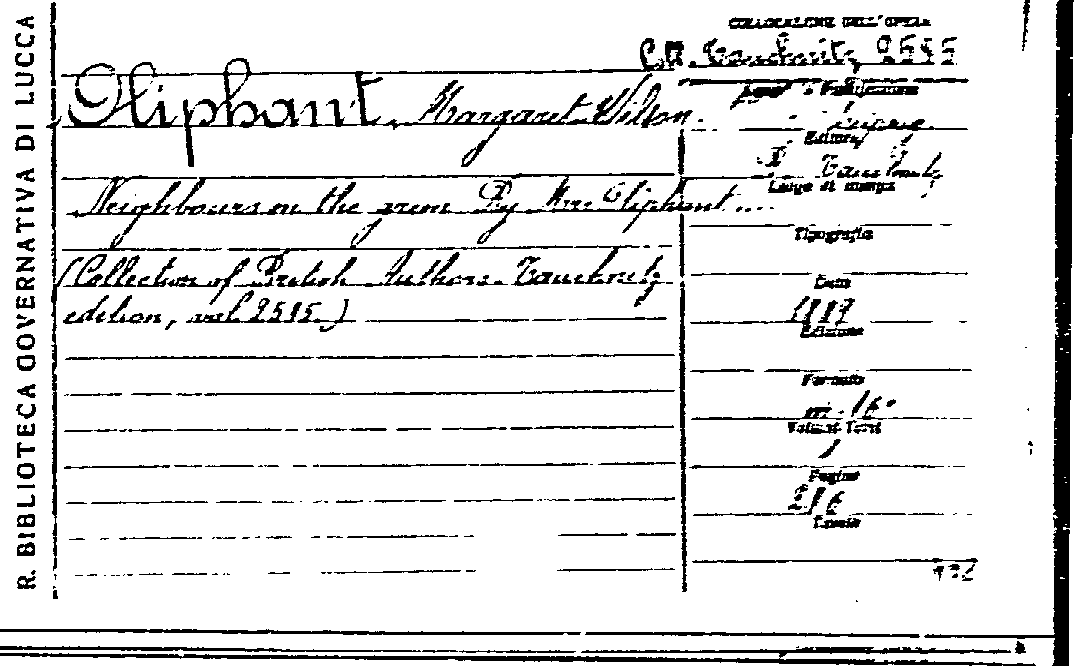 R. BIBLIOTECA GOVERNATIVA DI LUCCA
COLLOCAZIONE DELL'OPERA
Tauchnitz 2545
Oliphant, Margaret Wilson.
Neighbours on the green By Mrs Oliphant ....
(Collection of British Authors. Tauchnitz
edition, vol. 2545.)
Leipzig
Editore
B. Tauchnitz
Luogo di stampa
Tipografia
Data
Edizione
Formato
in-16°
Volumi-Tomi
1
Pagine
Tavole